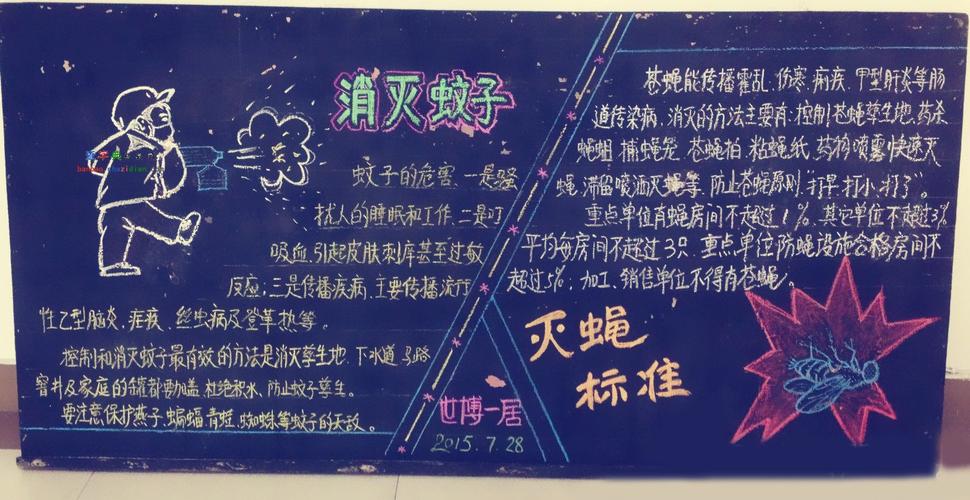 消灭蚊子
蚊子的危害、一是骚
扰人的睡眠和工作、二是叮
吸血、引起皮肤刺痒甚至过敏
反应；三是传播疾病、主要传播流行
性乙型脑炎、疟疾、丝虫病及登革热等。
控制和消灭蚊子最有效的方法是消灭孳生地、下水道、马路
窨井及家庭的罐都要加盖、杜绝积水、防止蚊子孳生。
要注意保护燕子、蝙蝠、青蛙、蜘蛛等蚊子的天敌。
世博一居
2015.7.28
苍蝇能传播霍乱、伤寒、痢疾、甲型肝炎等肠
道传染病、消灭的方法主要有：控制苍蝇孳生地、药杀
蝇蛆、捕蝇笼、苍蝇拍、粘蝇纸、药物喷雾快速灭
蝇、滞留喷洒灭蝇等、防止苍蝇原则、打早、打小、打了"。
重点单位有蝇房间不超过1%、其它单位不超过3%
平均每房间不超过3只、重点单位防蝇设施合格房间不
超过5%；加工、销售单位不得有苍蝇。
灭蝇
标准